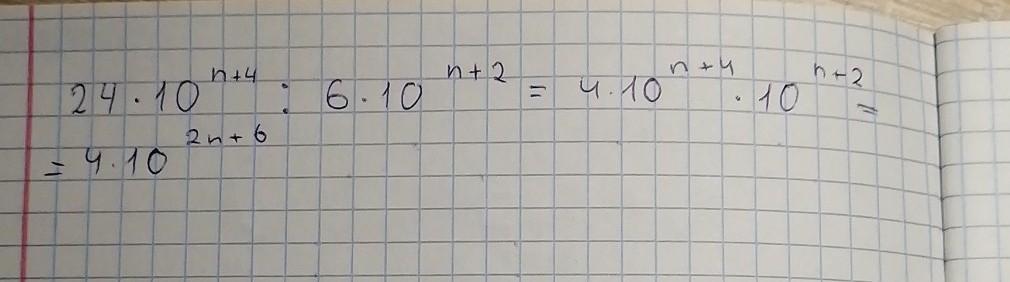 24·10^{n+4} : 6·10^{n+2} = 4·10^{n+4} · 10^{n+2} =
= 4·10^{2n+6}